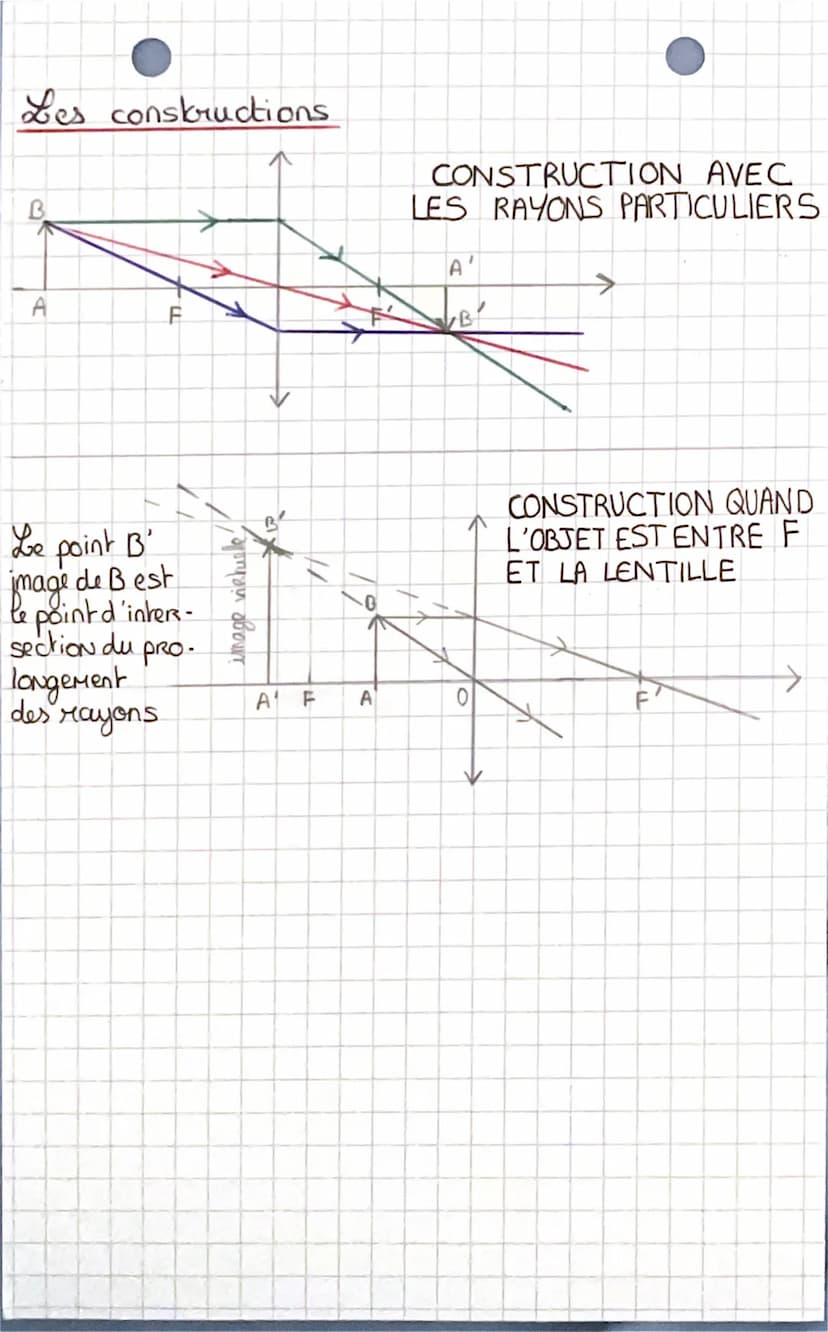 Les constructions
CONSTRUCTION AVEC
LES RAYONS PARTICULIERS
B
A'
A
F
F'
B'
CONSTRUCTION QUAND
L'OBJET EST ENTRE F
ET LA LENTILLE
Le point B'
image de B est
le point d'inter-
section du pro-
longement
des rayons
B'
image virtuelle
B
A'
F
A
O
F'